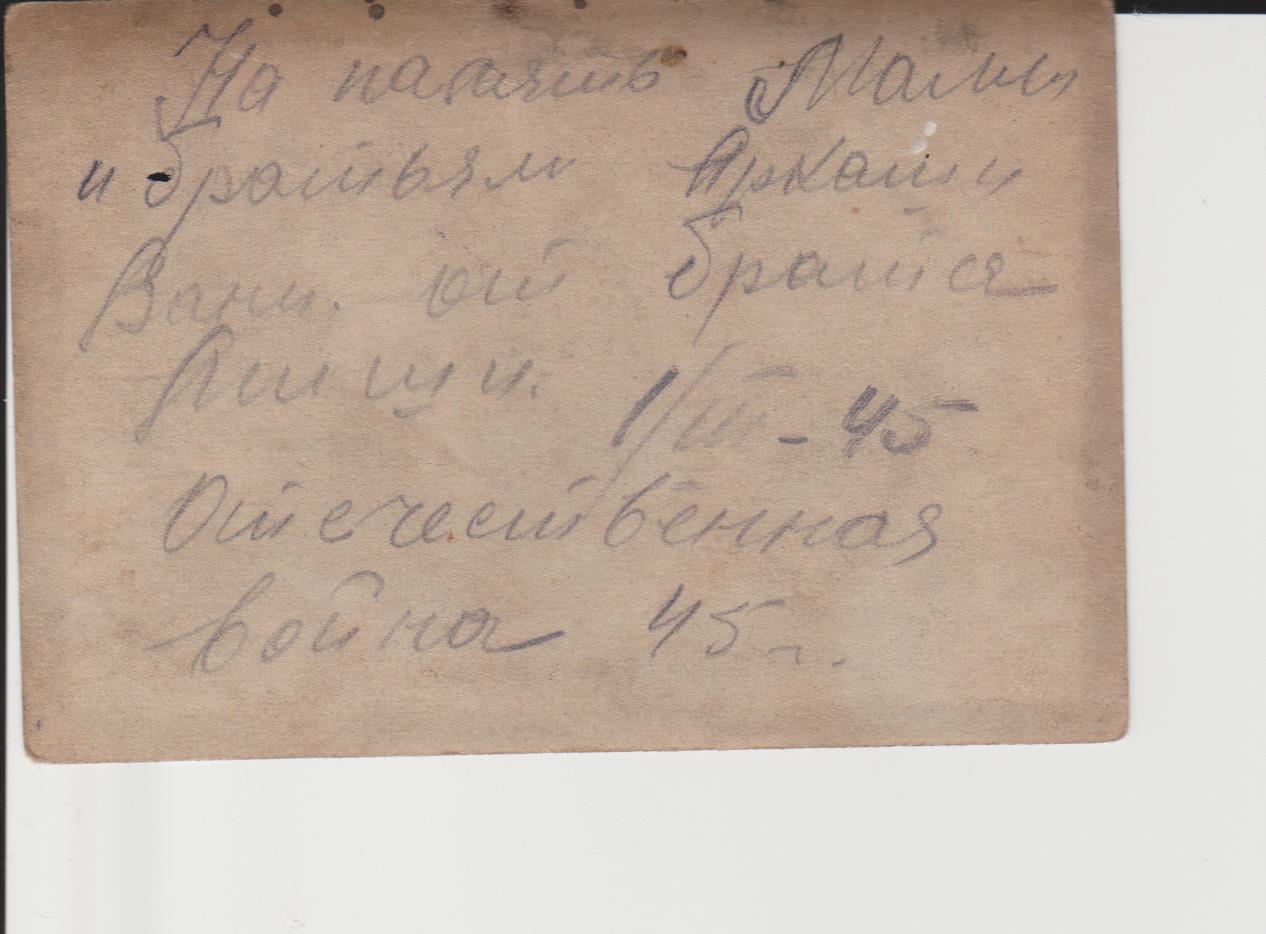 На память Мамы
и братьям Аркаши
Вани. от брата
1/III - 45
Отечественная
война 45 г.